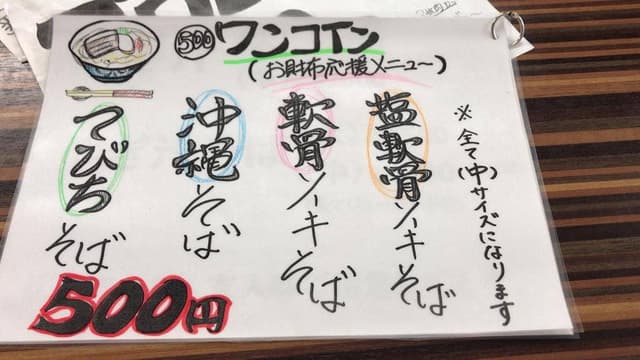 500 ワンコイン
(お財布応援メニュー)
※全て(中)サイズになります
塩軟骨ソーキそば
軟骨ソーキそば
沖縄そば
てびちそば
500円